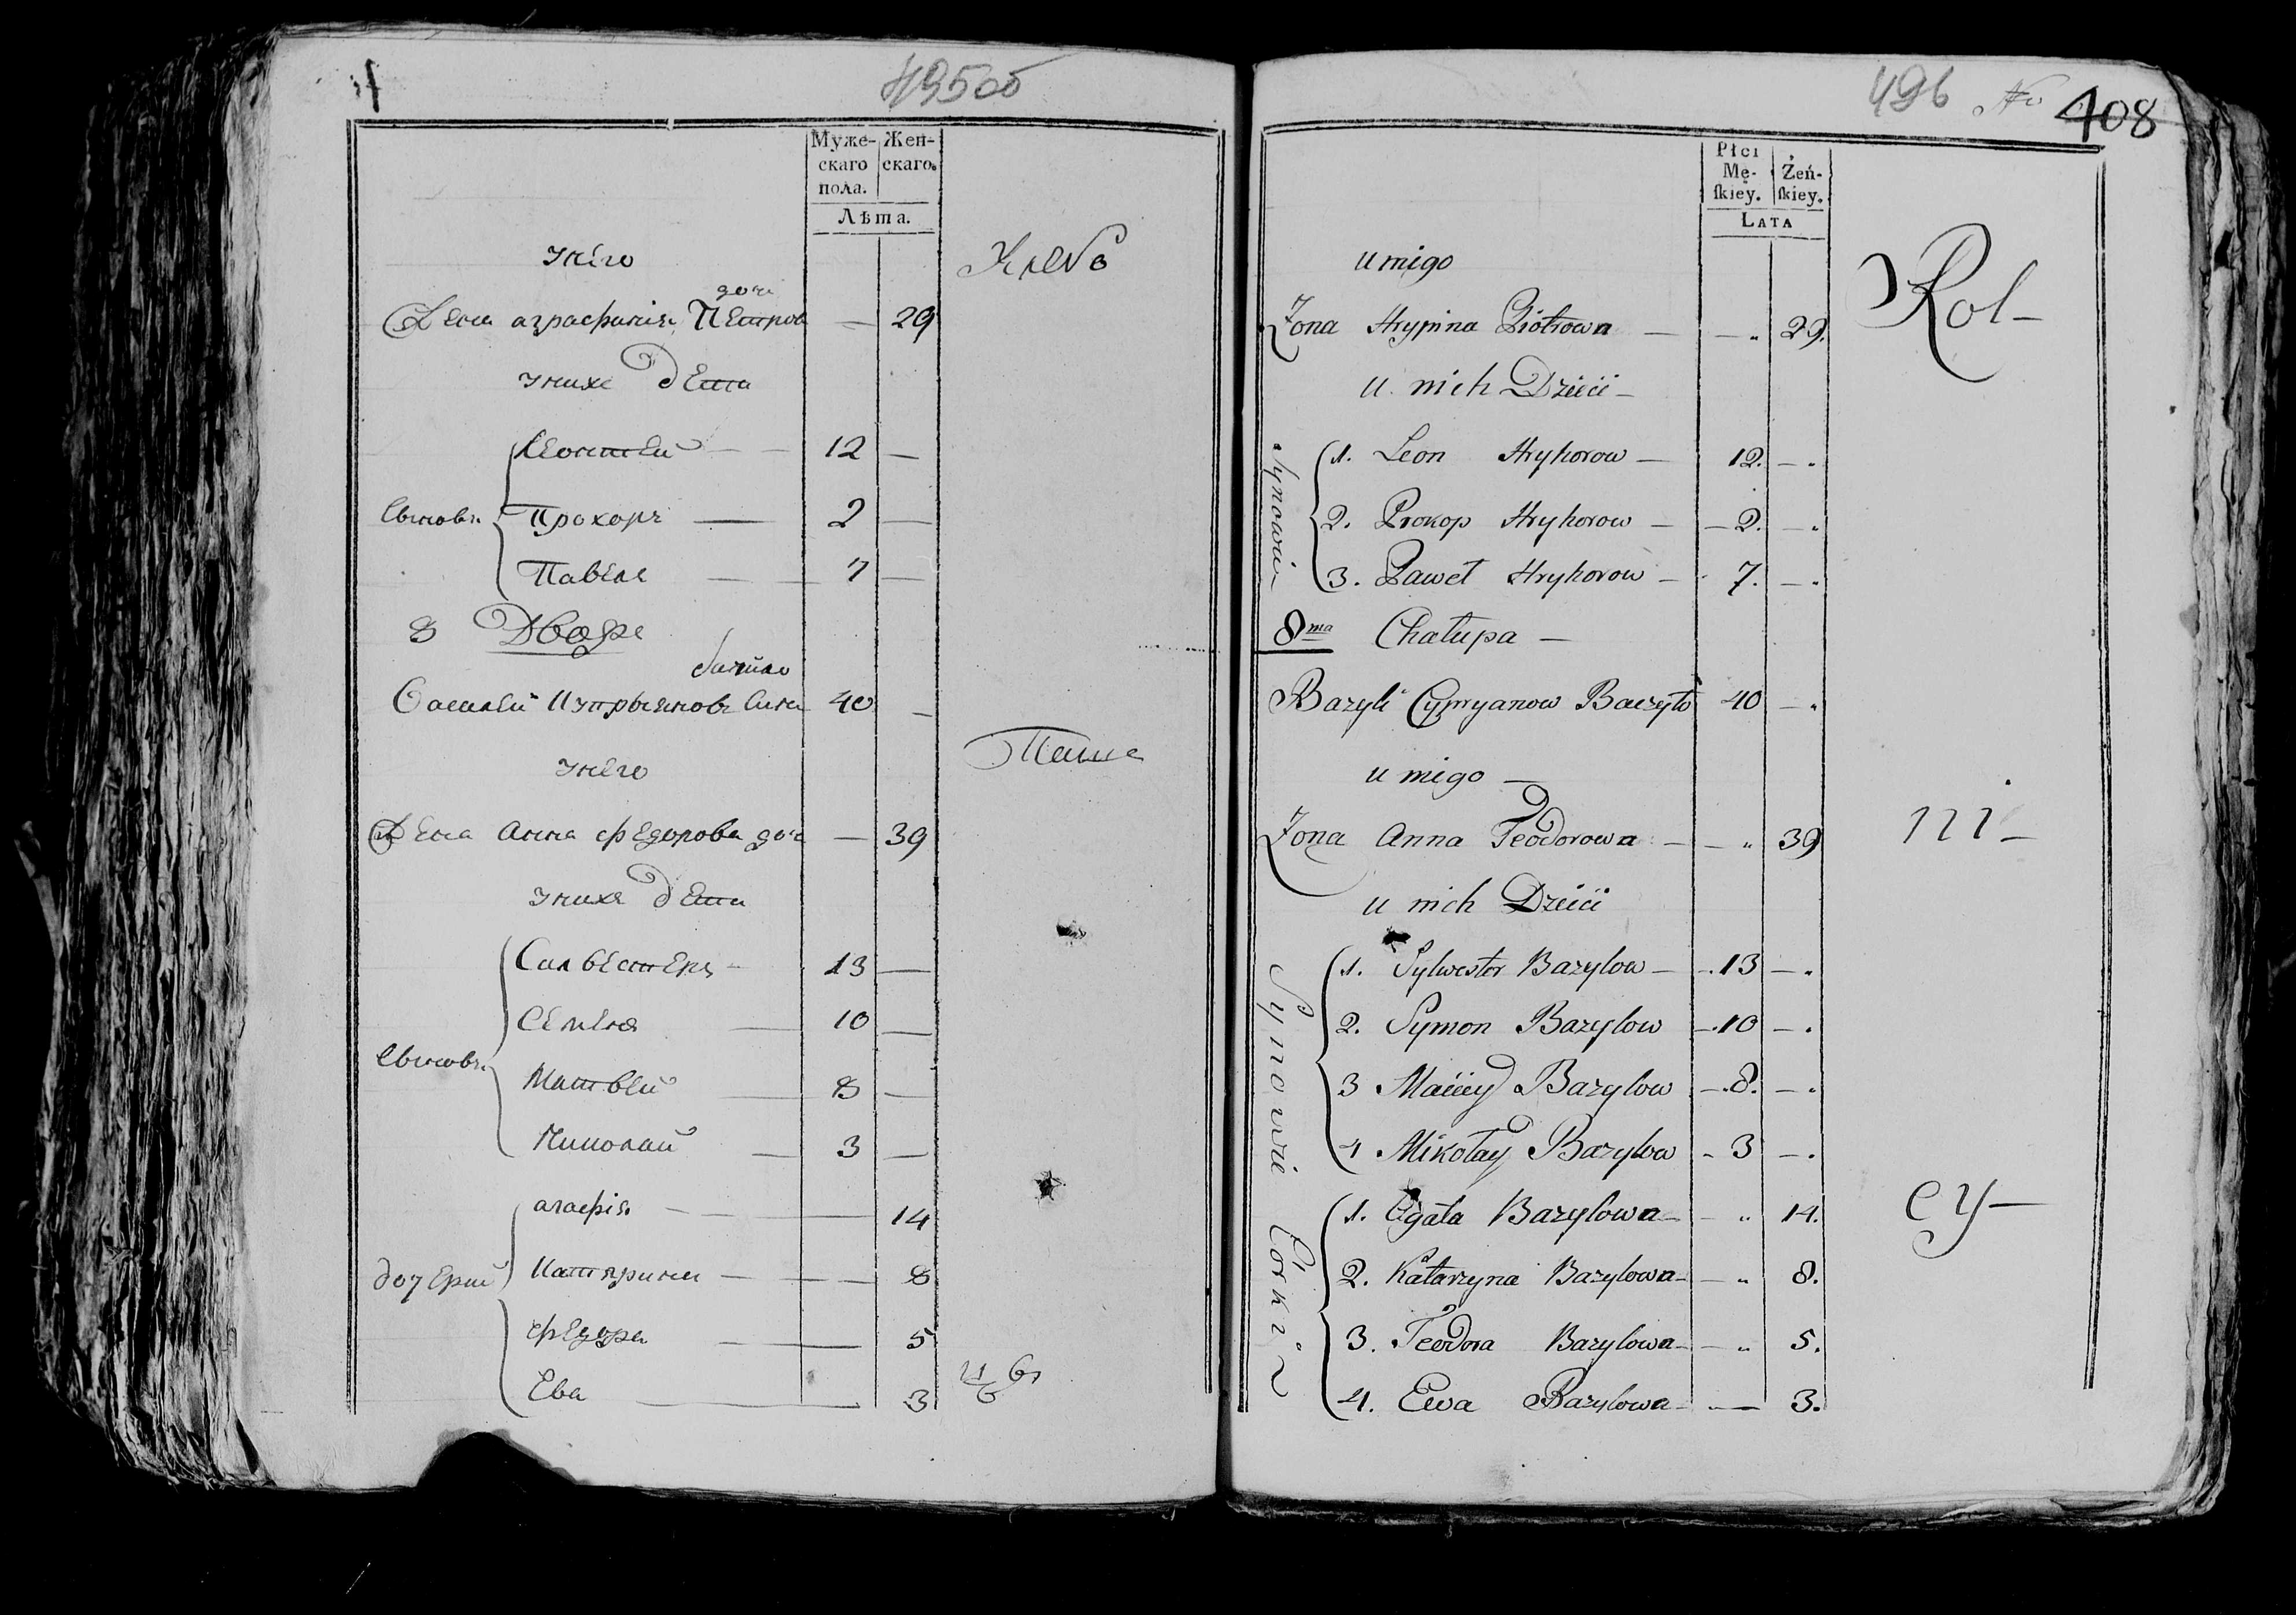 495об
Муже-
скаго
пола.
Жен-
скаго.
Лѣта.
унѣго
Хлеbo
дочь
Жена аграфиnія Петров — 29
унихъ дети
Сыновъя
Леонтей — 12 —
Прохоръ — 2 —
Павелъ — 7 —
8 Дворъ
Василей Цыпрыяновъ Сынъ 40 —
унего
Паше
Жена Анна федорова доч — 39
унихъ дети
Сыновъя
Сильвестеръ — 13 —
Семенъ — 10 —
Матвей — 8 —
Николай — 3 —
дочери
агафія — 14
Катярина — 8
федора — 5
Ева — 3
цы
496 No 408
Płci
Mę-
skiey.
Żeń-
skiey.
LATA
u niego
Rol-
Żona Hrypina Piotrowa — 29.
u nich Dzieci —
Synowie
1. Leon Hryhorow — 12. —
2. Prokop Hryhorow — 2. —
3. Paweł Hryhorow — 7. —
8ma Chałupa —
Bazyli Cypryanow Baczyło 40 —
u niego —
Żona Anna Teodorowa — 39
ni-
u nich Dzieci
Synowie
1. Sylwester Bazylow — 13 —
2. Symon Bazylow — 10 —
3 Maciey Bazylow — 8. —
4 Mikołay Bazylow — 3 —
Corki
1. Agata Bazylowa — 14.
cy-
2. Katarzyna Bazylowa — 8.
3. Teodora Bazylowa — 5.
4. Ewa Bazylowa — 3.